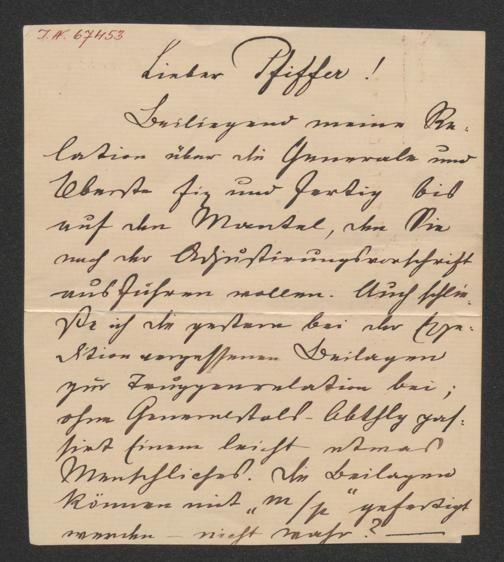 I.N. 67453
Lieber Pfiffer!
Beiliegend meine Re-
lation über die Generale und
Oberste fix und fertig bis
auf den Mantel, den Sie
nach der Adjustirungsvorschrift
ausführen wollen. Auch schlie-
ße ich die gestern bei der Expe-
dition vergessenen Beilagen
zur Truppenrelation bei;
ohne Generalstabs-Abthlg pas-
sirt Einem leicht etwas
Menschliches. Die Beilagen
können mit "m/p" gefertigt
werden – nicht wahr? —